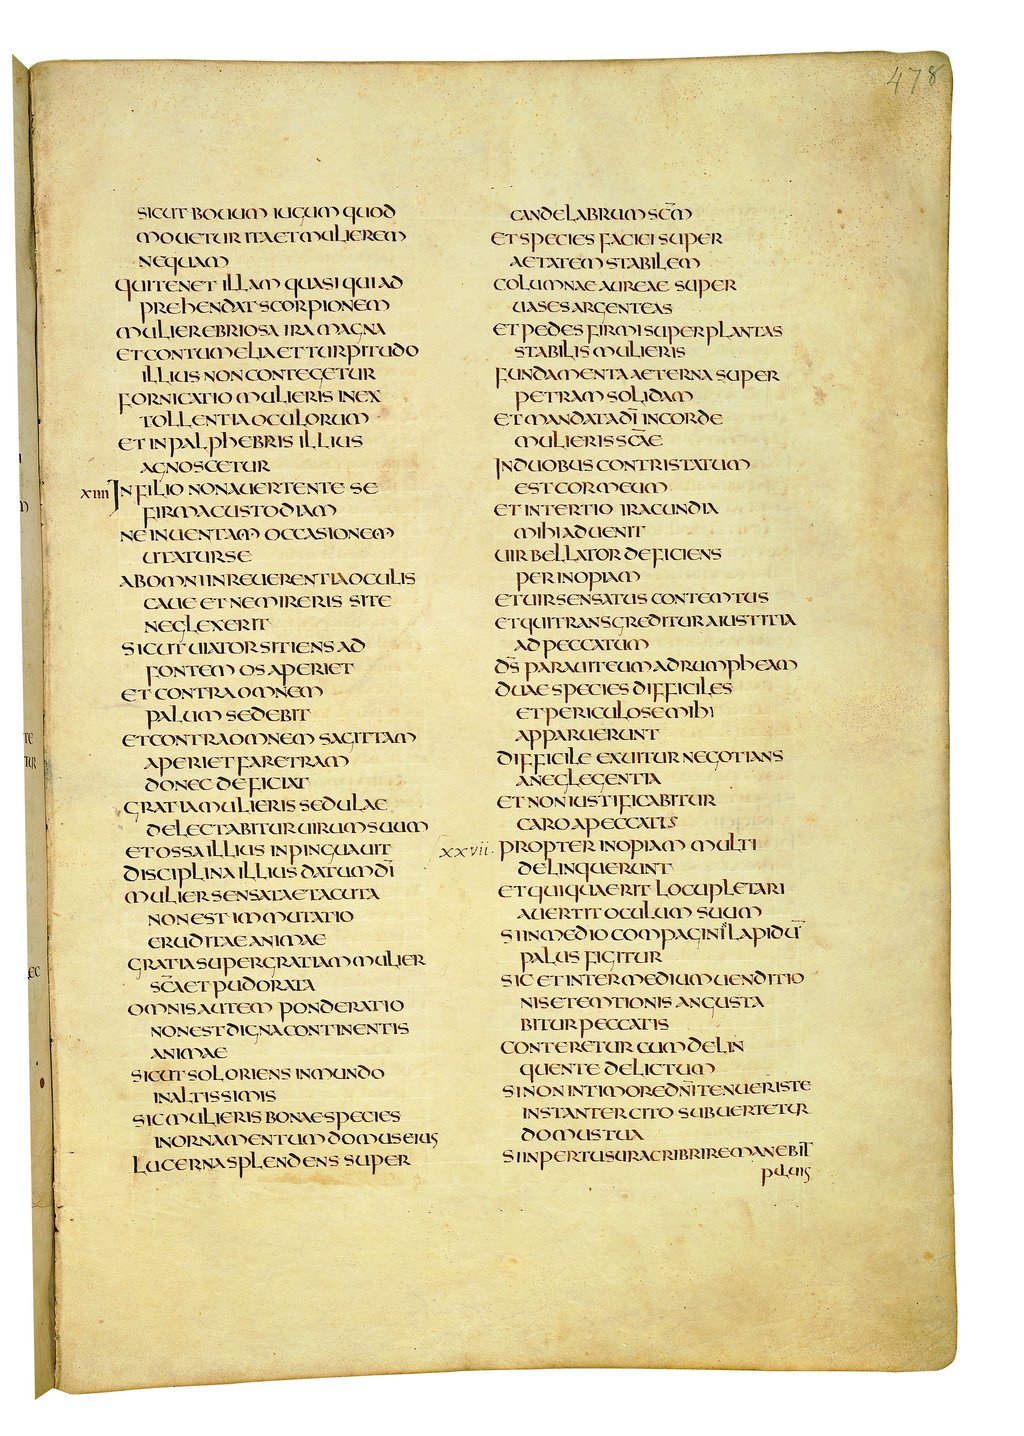 478
SICUT BOUUM IUGUM QUOD
MOUETUR ITA ET MULIEREM
NEQUAM
QUI TENET ILLAM QUASI QUI AD
PREHENDAT SCORPIONEM
MULIER EBRIOSA IRA MAGNA
ET CONTUMELIA ET TURPITUDO
ILLIUS NON CONTEGETUR
FORNICATIO MULIERIS IN EX
TOLLENTIA OCULORUM
ET IN PALPHEBRIS ILLIUS
AGNOSCETUR
XIIII IN FILIO NON AUERTENTE SE
FIRMA CUSTODIAM
NE INUENTAM OCCASIONEM
UTATUR SE
AB OMNI INREUERENTIA OCULIS
CAUE ET NE MIRERIS SI TE
NEGLEXERIT
SICUT UIATOR SITIENS AD
FONTEM OS APERIET
ET CONTRA OMNEM
PALUM SEDEBIT
ET CONTRA OMNEM SAGITTAM
APERIET FARETRAM
DONEC DEFICIAT
GRATIA MULIERIS SEDULAE
DELECTABITUR UIRUM SUUM
ET OSSA ILLIUS INPINGUAUIT
DISCIPLINA ILLIUS DATUM DĪ
MULIER SENSATA ET ACUTA
NON EST IMMUTATIO
ERUDITAE ANIMAE
GRATIA SUPER GRATIAM MULIER
SC̄A ET PUDORATA
OMNIS AUTEM PONDERATIO
NON EST DIGNA CONTINENTIS
ANIMAE
SICUT SOL ORIENS IN MUNDO
IN ALTISSIMIS
SIC MULIERIS BONAE SPECIES
IN ORNAMENTUM DOMUS EIUS
LUCERNA SPLENDENS SUPER
CANDELABRUM SC̄M
ET SPECIES FACIEI SUPER
AETATEM STABILEM
COLUMNAE AUREAE SUPER
UASES ARGENTEAS
ET PEDES FIRMI SUPER PLANTAS
STABILIS MULIERIS
FUNDAMENTA AETERNA SUPER
PETRAM SOLIDAM
ET MANDATA DĪ IN CORDE
MULIERIS SC̄AE
IN DUOBUS CONTRISTATUM
EST COR MEUM
ET IN TERTIO IRACUNDIA
MIHI ADUENIT
UIR BELLATOR DEFICIENS
PER INOPIAM
ET UIR SENSATUS CONTEMTUS
ET QUI TRANSGREDITUR A IUSTITIA
AD PECCATUM
DS̄ PARAUIT EUM AD RUMPHEAM
DUAE SPECIES DIFFICILES
ET PERICULOSE MIHI
APPARUERUNT
DIFFICILE EXUITUR NEGOTIANS
A NEGLEGENTIA
ET NON IUSTIFICABITUR
CARO A PECCATIS
XXVII. PROPTER INOPIAM MULTI
DELINQUERUNT
ET QUI QUAERIT LOCUPLETARI
AUERTIT OCULUM SUUM
SI IN MEDIO COMPAGINI LAPIDŪ
PALUS FIGITUR
SIC ET INTER MEDIUM UENDITIO
NIS ET EMTIONIS ANGUSTA
BITUR PECCATIS
CONTERETUR CUM DELIN
QUENTE DELICTUM
SI NON IN TIMORE DN̄I TENUERIS TE
INSTANTER CITO SUBUERTETUR
DOMUS TUA
SI IN PERTUSURA CRIBRI REMANEBIT
PULUIS